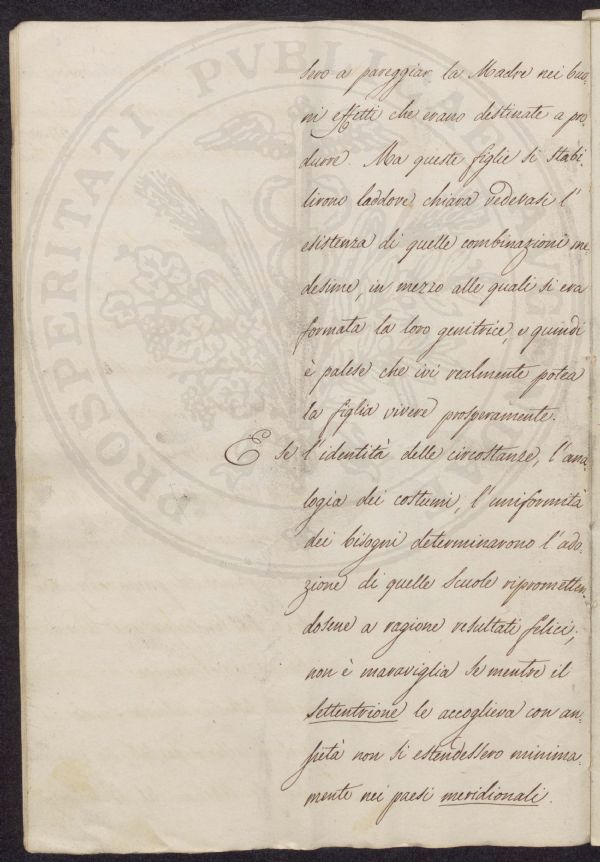 sero a pareggiar la Madre nei buo=
ni effetti che erano destinate a pro=
durre. Ma queste figlie si stabi=
lirono laddove chiara vedevasi l'
esistenza di quelle combinazioni me=
desime, in mezzo alle quali si era
formata la loro genitrice, e quindi
è palese che ivi realmente potea
la figlia vivere prosperamente.
E se l'identità delle circostanze, l'ana=
logia dei costumi, l'uniformità
dei bisogni determinarono l'ado=
zione di quelle Scuole ripromotten=
dosene a ragione resultati felici;
non è maraviglia se mentre il
settentrione le accoglieva con an=
sietà non si estendessero minima=
mente nei paesi meridionali.
PROSPERITATI PVBLICAE